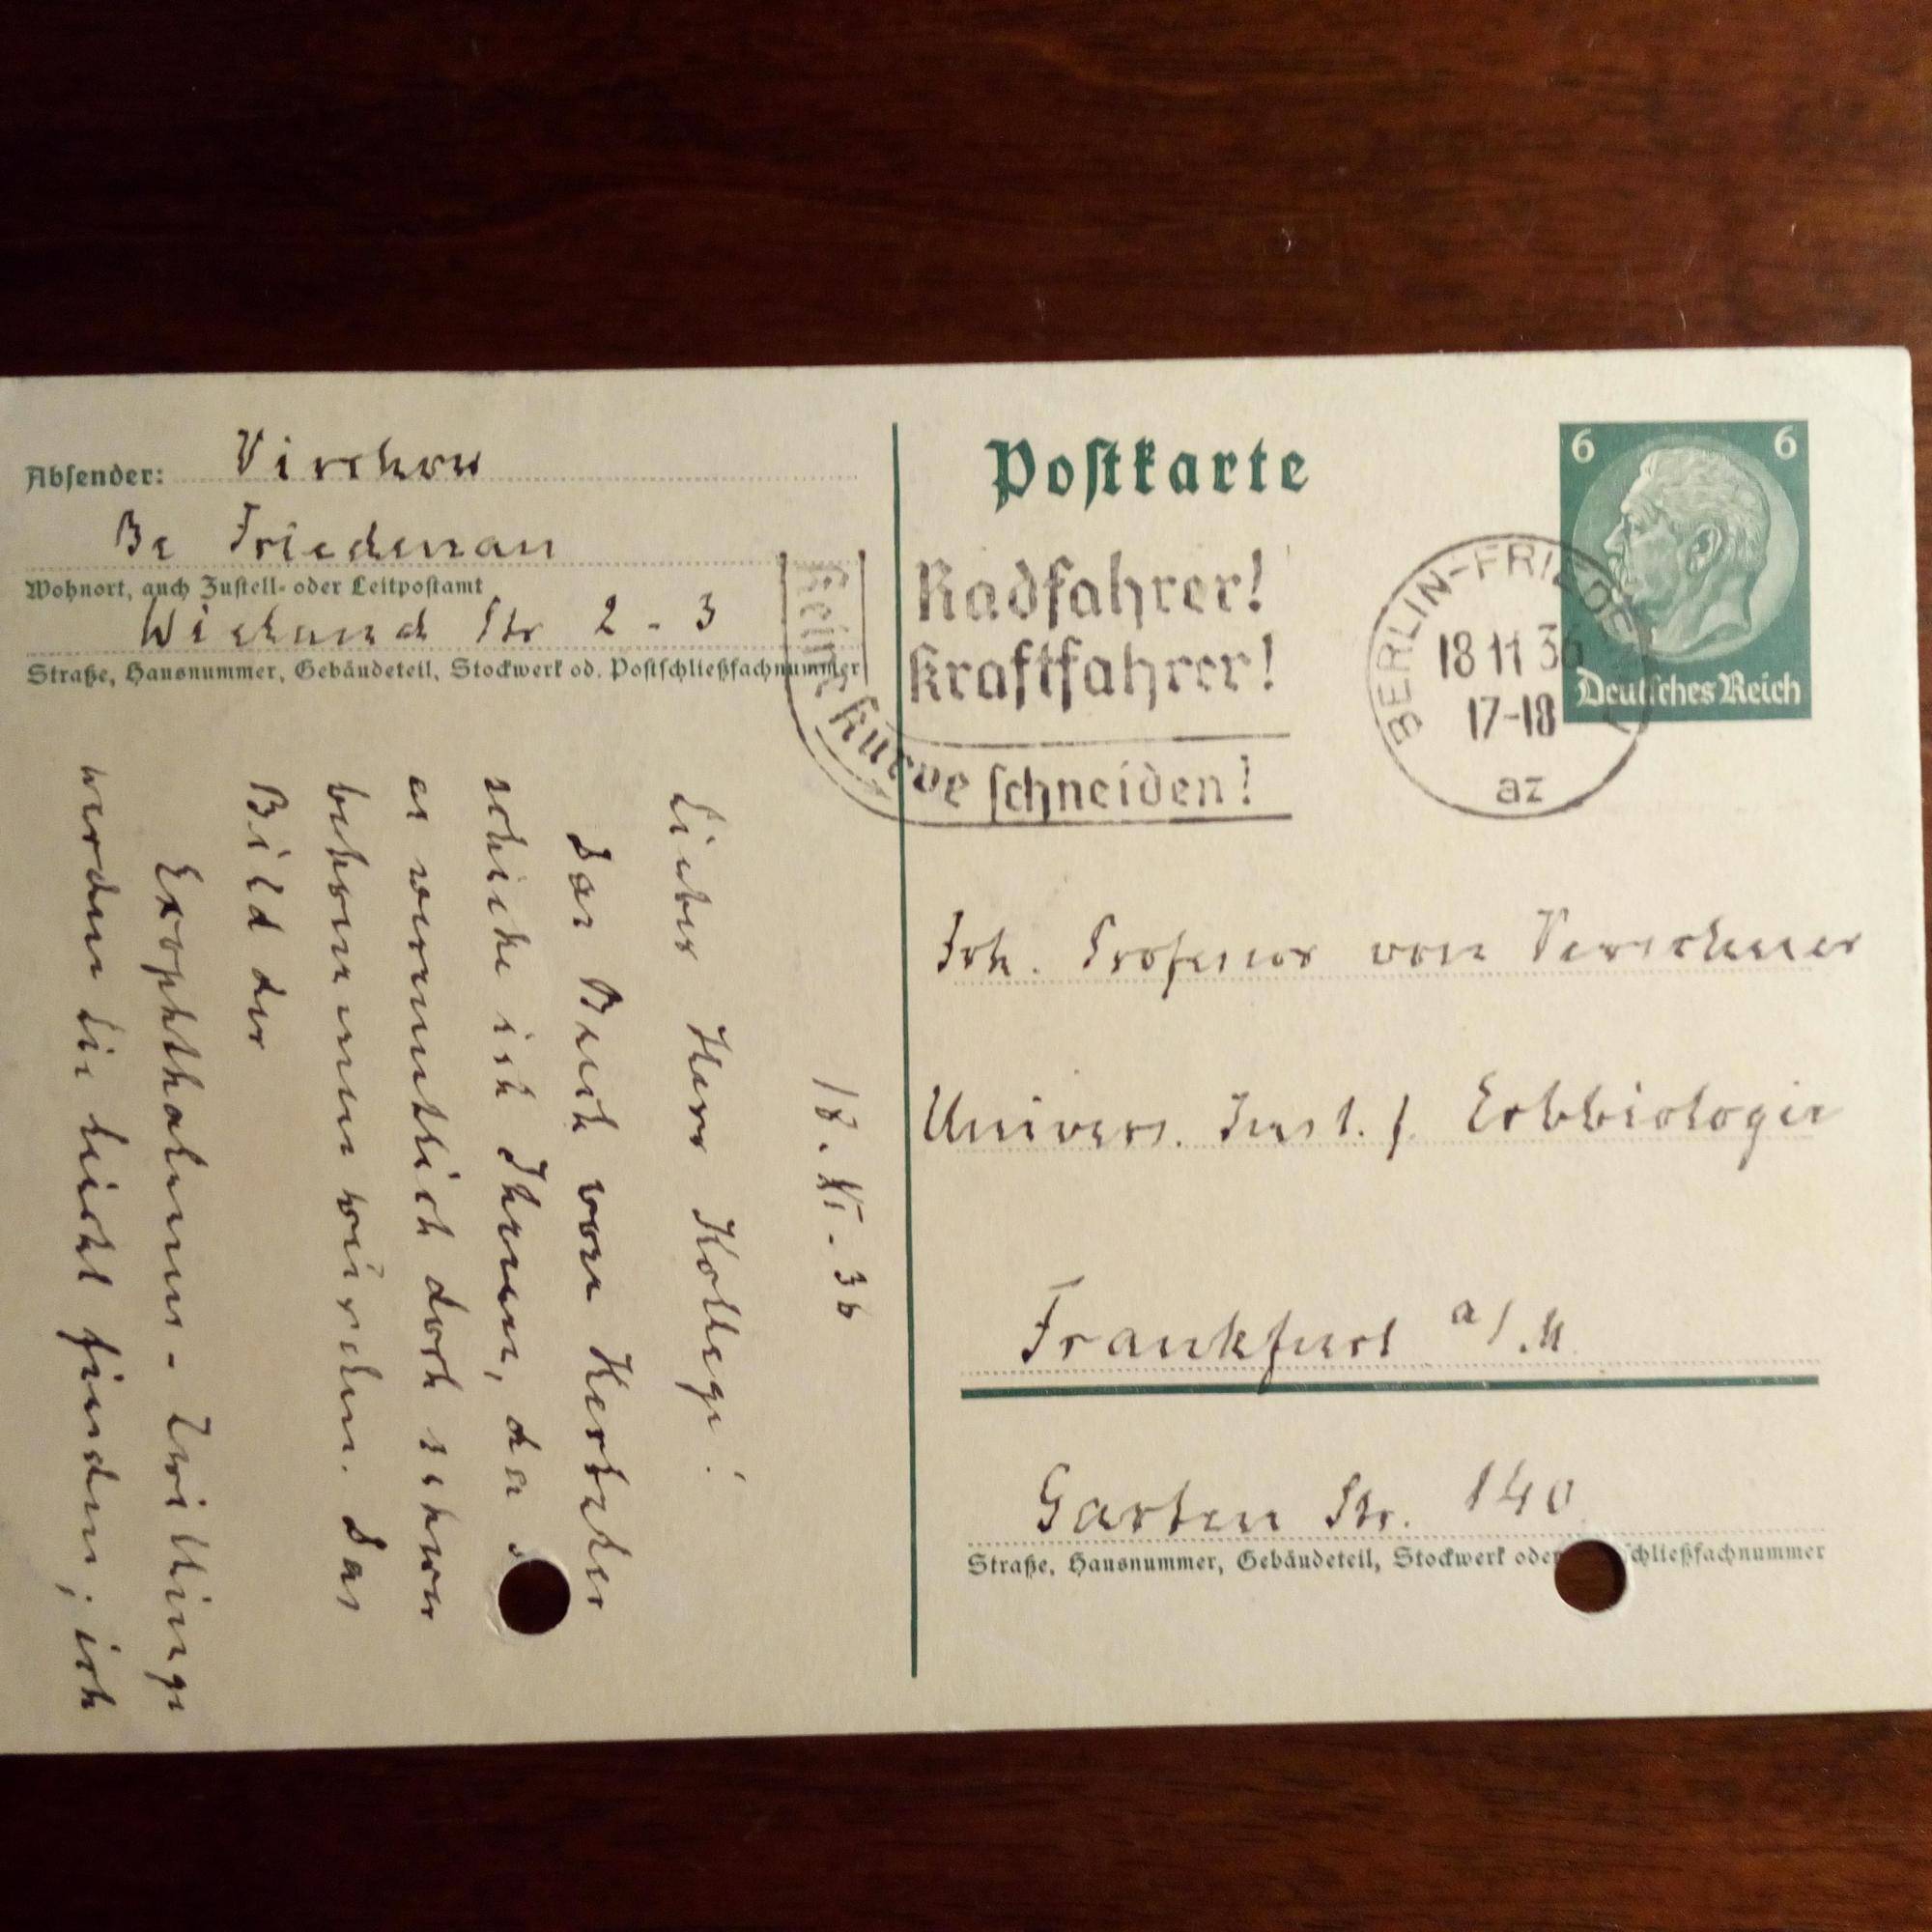 Absender: Virchow
Be Friedenau
Wohnort, auch Zustell- oder Leitpostamt
Wieland Str 2-3
Straße, Hausnummer, Gebäudeteil, Stockwerk od. Postschließfachnummer
18. XI. 36
Lieber Herr Kollege!
Das Buch von Kertzler
schicke ich Ihnen, da S
es vermutlich dort schwer
bekommen würden. Das
Bild der
Exophthalmus - Zwillinge
werden Sie leicht finden; ich
Postkarte
6 6
Deutsches Reich
Radfahrer!
Kraftfahrer!
Keine Kurve schneiden!
BERLIN-FRIEDENAU
18 11 36
17-18
az
Professor von Verschuer
Univers. Inst. f. Erbbiologie
Frankfurt a/M
Garten Str. 140
Straße, Hausnummer, Gebäudeteil, Stockwerk oder schließfachnummer